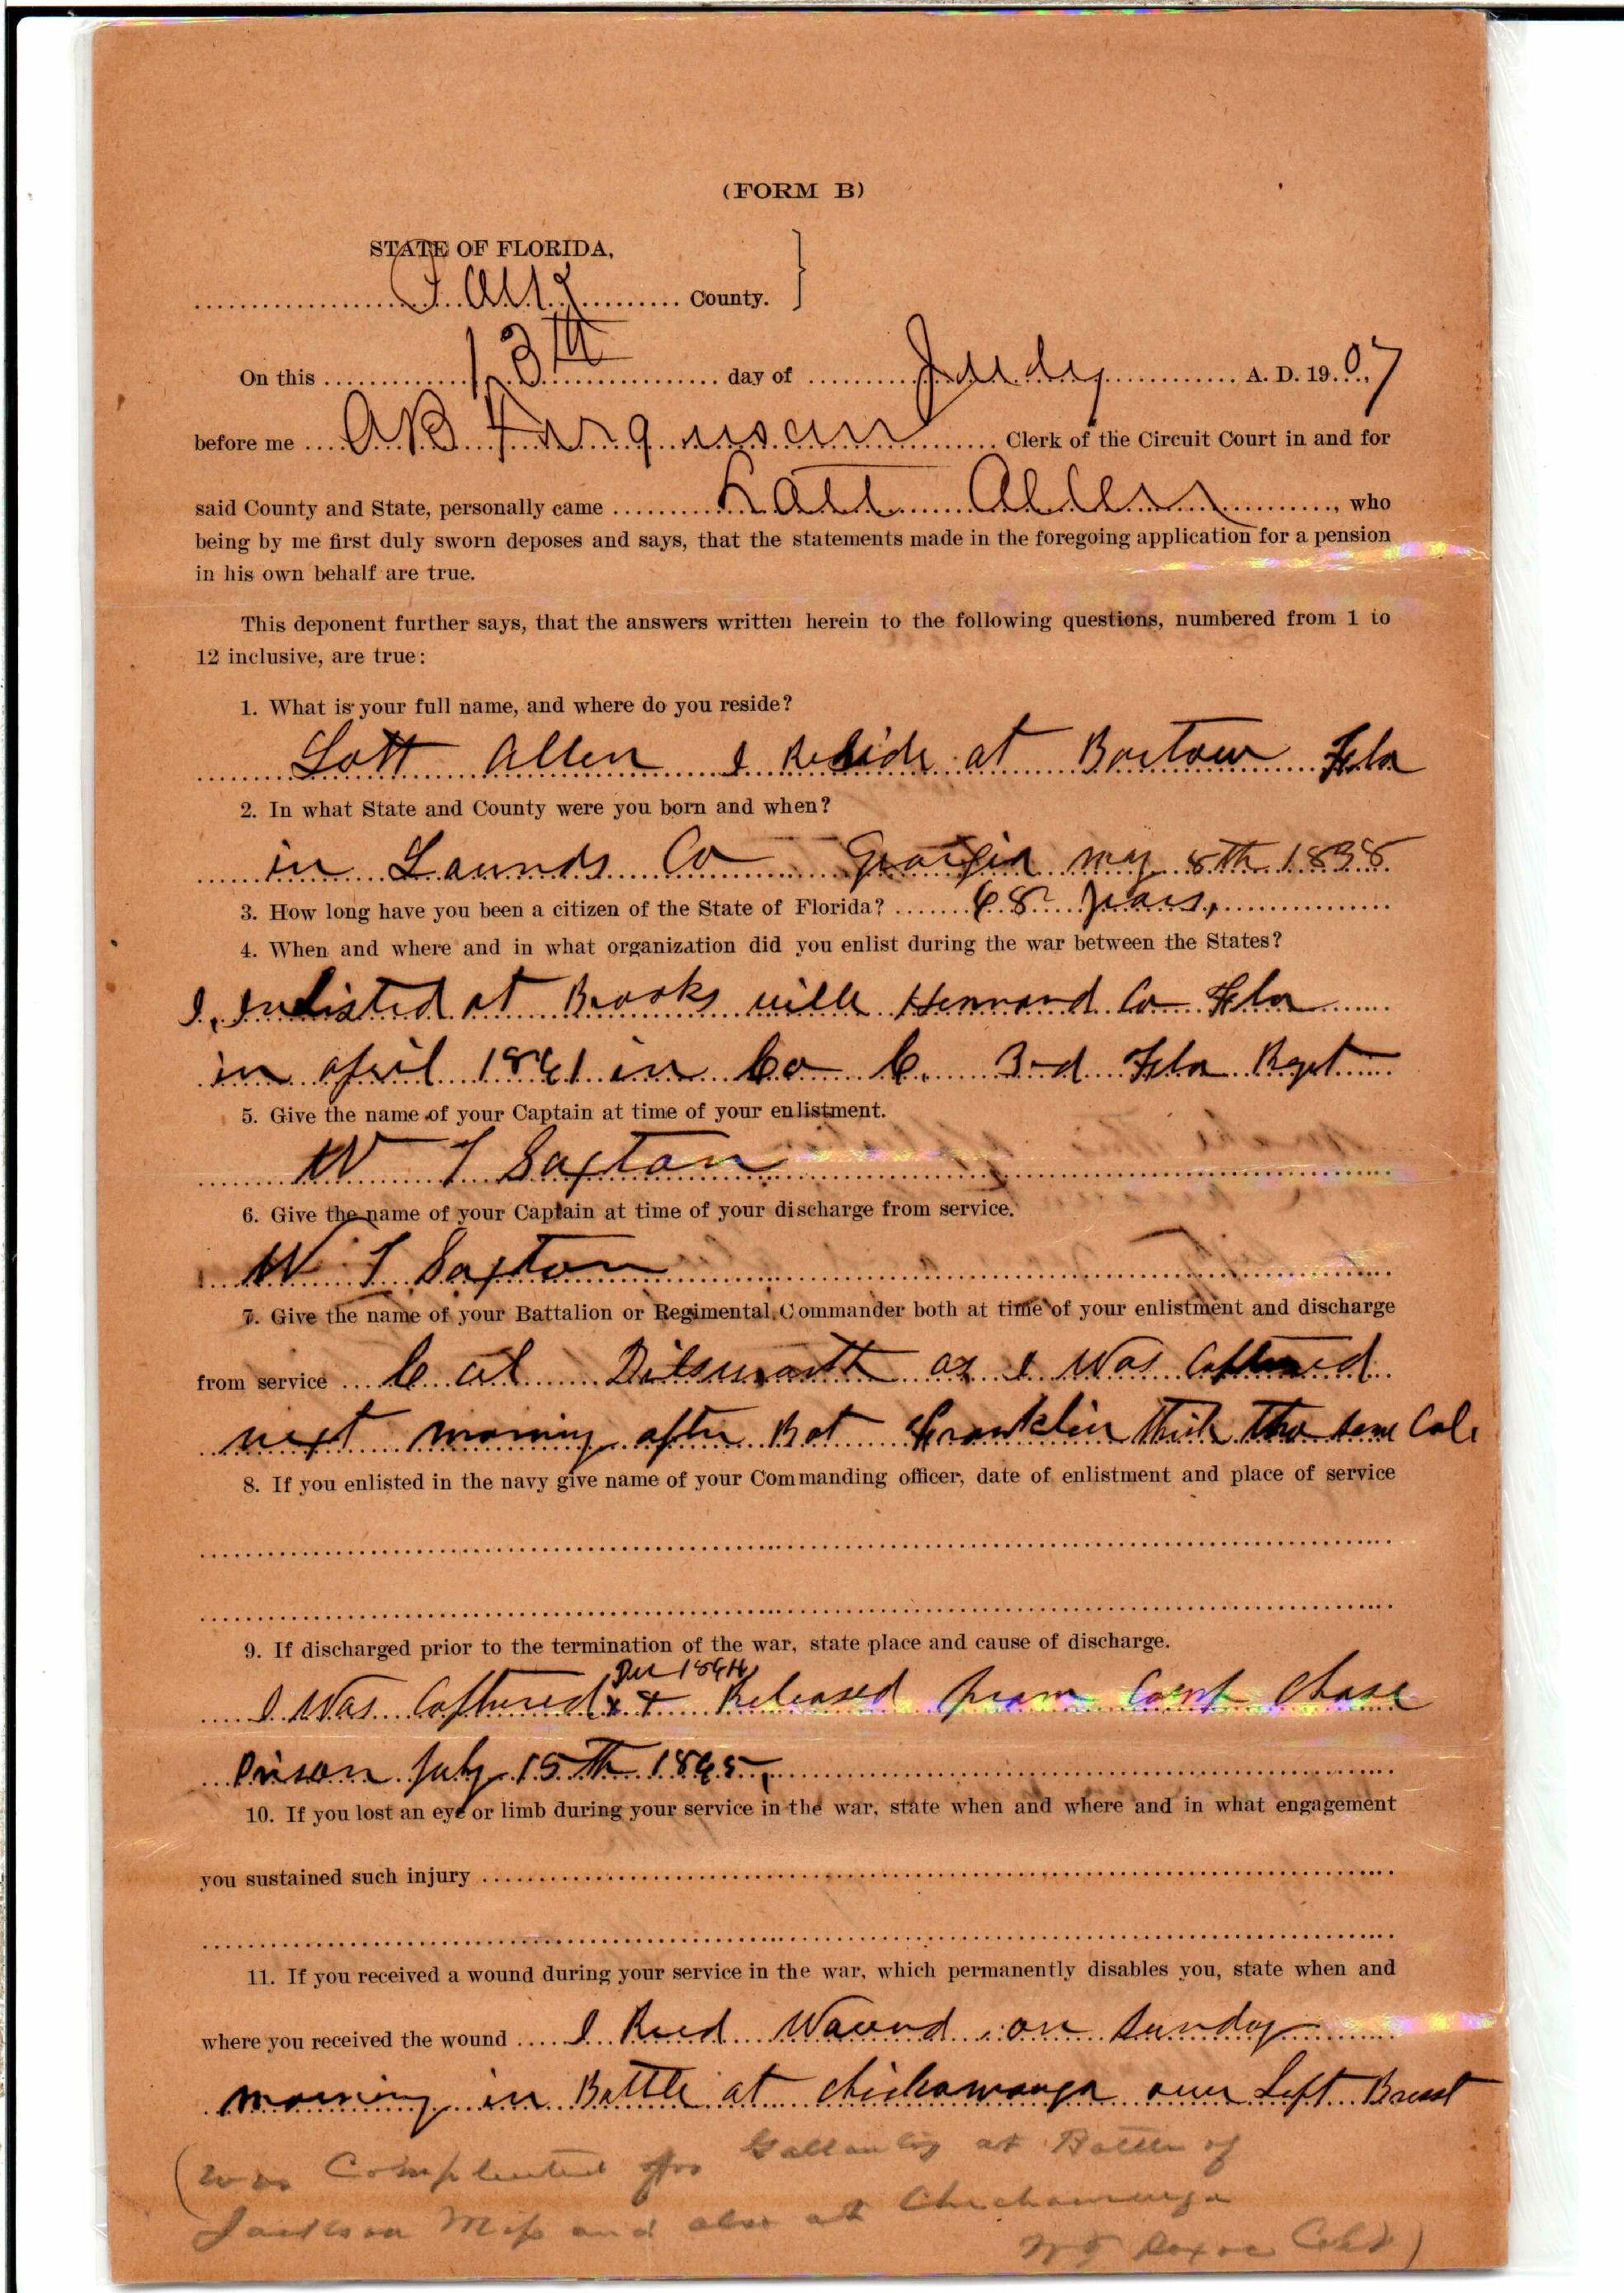 (FORM B)
STATE OF FLORIDA,
Polk County.
On this 13th day of July A. D. 1907
before me A B Ferguson Clerk of the Circuit Court in and for
said County and State, personally came Lott Allen, who
being by me first duly sworn deposes and says, that the statements made in the foregoing application for a pension
in his own behalf are true.
This deponent further says, that the answers written herein to the following questions, numbered from 1 to
12 inclusive, are true:
1. What is your full name, and where do you reside?
Lott Allen I Reside at Bartow Fla
2. In what State and County were you born and when?
in Lounds Co Georgia may 8th 1838
3. How long have you been a citizen of the State of Florida? 68 years,
4. When and where and in what organization did you enlist during the war between the States?
I, Inlisted at Brooks ville Hernand Co Fla
in april 1861 in Co C. 3rd Fla Regt
5. Give the name of your Captain at time of your enlistment.
W T Saxton
6. Give the name of your Captain at time of your discharge from service.
W T Saxton
7. Give the name of your Battalion or Regimental Commander both at time of your enlistment and discharge
from service Col Dilsworth as I Was Captured
next morning after Bat Franklin think the same Col.
8. If you enlisted in the navy give name of your Commanding officer, date of enlistment and place of service
9. If discharged prior to the termination of the war, state place and cause of discharge.
Dec 1864
I Was Captured x & Released from Camp Chase
Prison July 15th 1865,
10. If you lost an eye or limb during your service in the war, state when and where and in what engagement
you sustained such injury
11. If you received a wound during your service in the war, which permanently disables you, state when and
where you received the wound I Recd Wound on Sunday
morning in Battle at chickamauga over Left Breast
(was Complented for Gallantry at Battle of
Jackson Miss and also at Chickamauga
W T Saxon Capt)